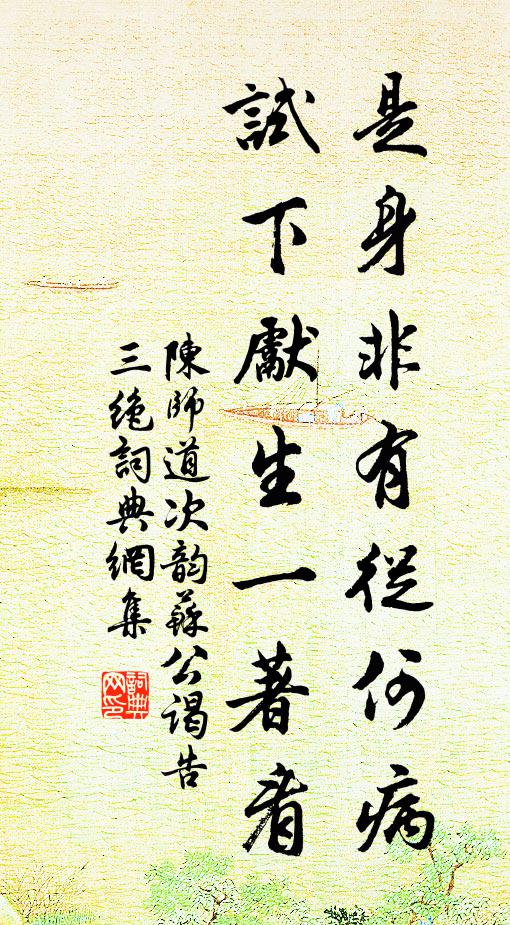 是身非有從何病
試下厭生一著看
陳師道次韵蘇公謁告
三絕詞典網集
詞典网印